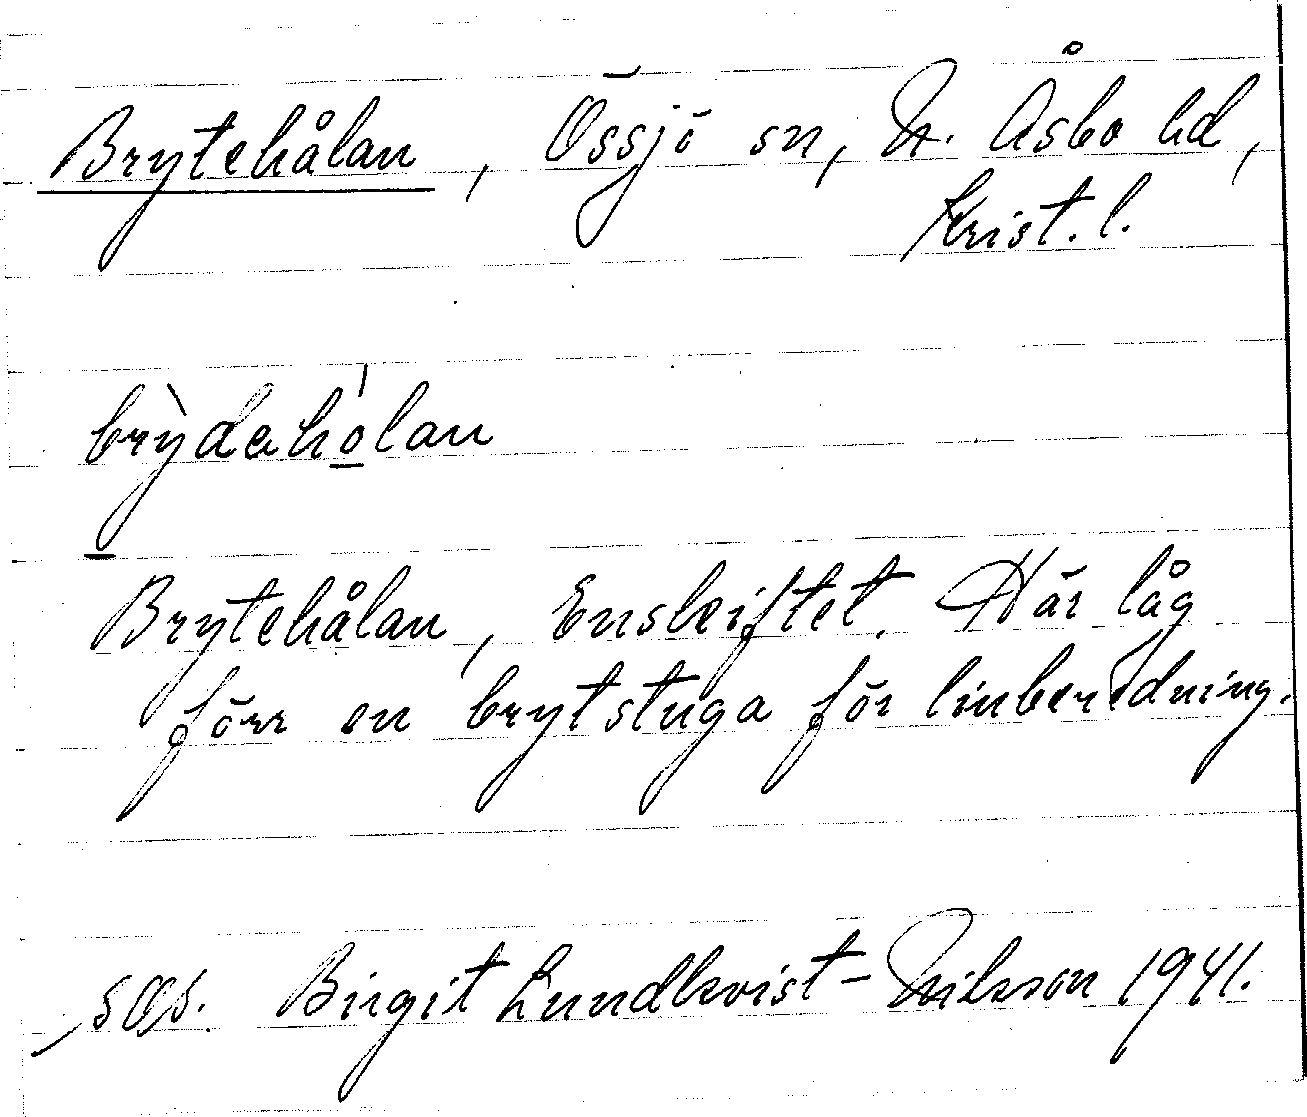 Brytehålan, Össjö sn, N. Åsbo hd,
Krist. l.
brỳdahólan
Brytehålan, Enskiftet. Här låg
förr en brytstuga för linberedning.
Birgit Lundkvist-Nilsson 1941.